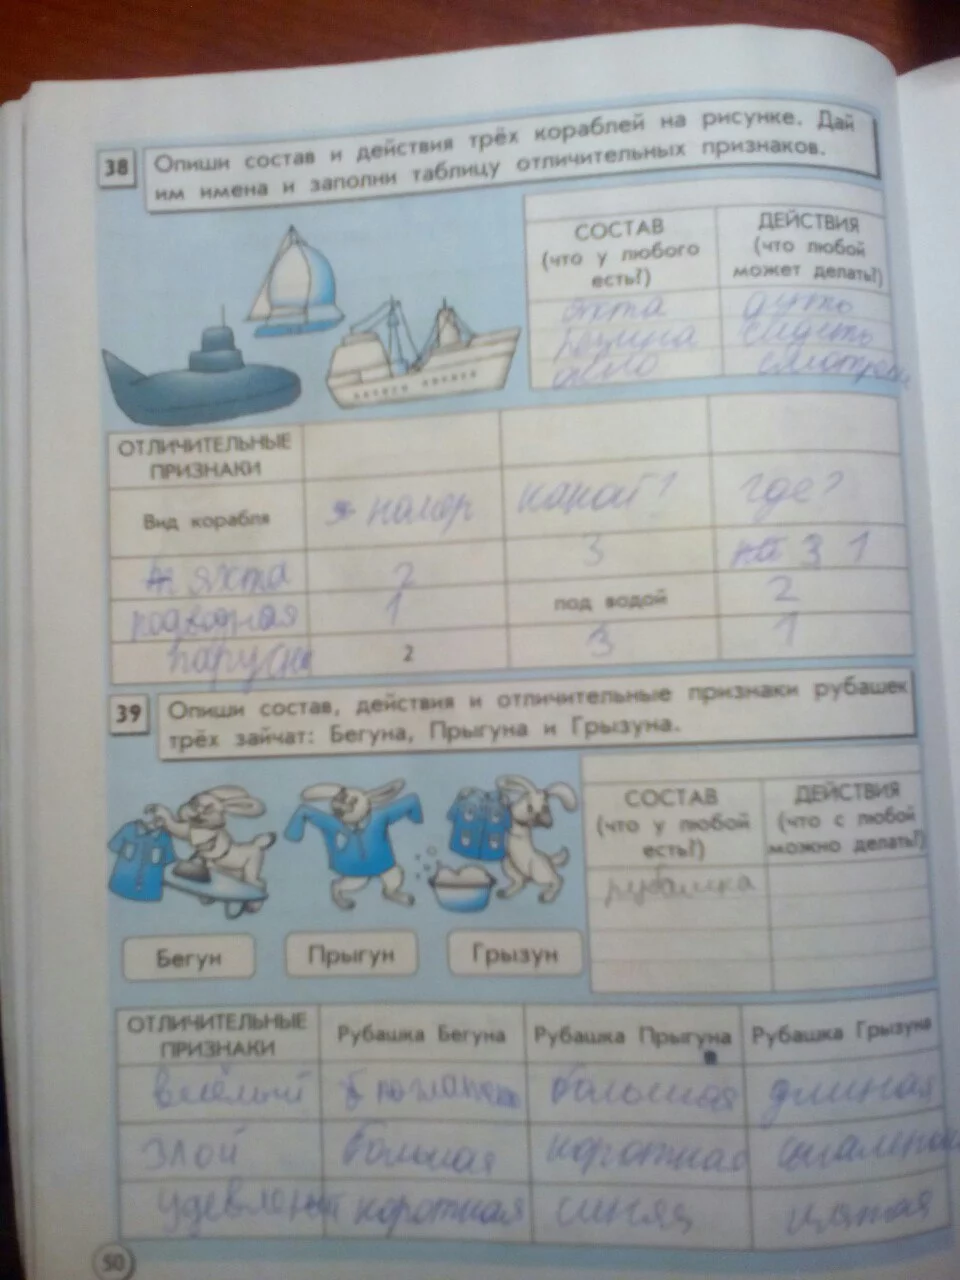 38
Опиши состав и действия трёх кораблей на рисунке. Дай
им имена и заполни таблицу отличительных признаков.
СОСТАВ
(что у любого
есть?)
ДЕЙСТВИЯ
(что любой
может делать?)
яхта
ОТЛИЧИТЕЛЬНЫЕ
ПРИЗНАКИ
Вид корабля
какой?
где?
яхта
2
3
3 1
подводная
1
под водой
2
2
3
1
39
Опиши состав, действия и отличительные признаки рубашек
трёх зайчат: Бегуна, Прыгуна и Грызуна.
СОСТАВ
(что у любой
есть?)
ДЕЙСТВИЯ
(что с любой
можно делать?)
рубашка
Бегун
Прыгун
Грызун
ОТЛИЧИТЕЛЬНЫЕ
ПРИЗНАКИ
Рубашка Бегуна
Рубашка Прыгуна
Рубашка Грызуна
весёлый
большая
длиная
злой
большая
коротная
коротная
синяя
50